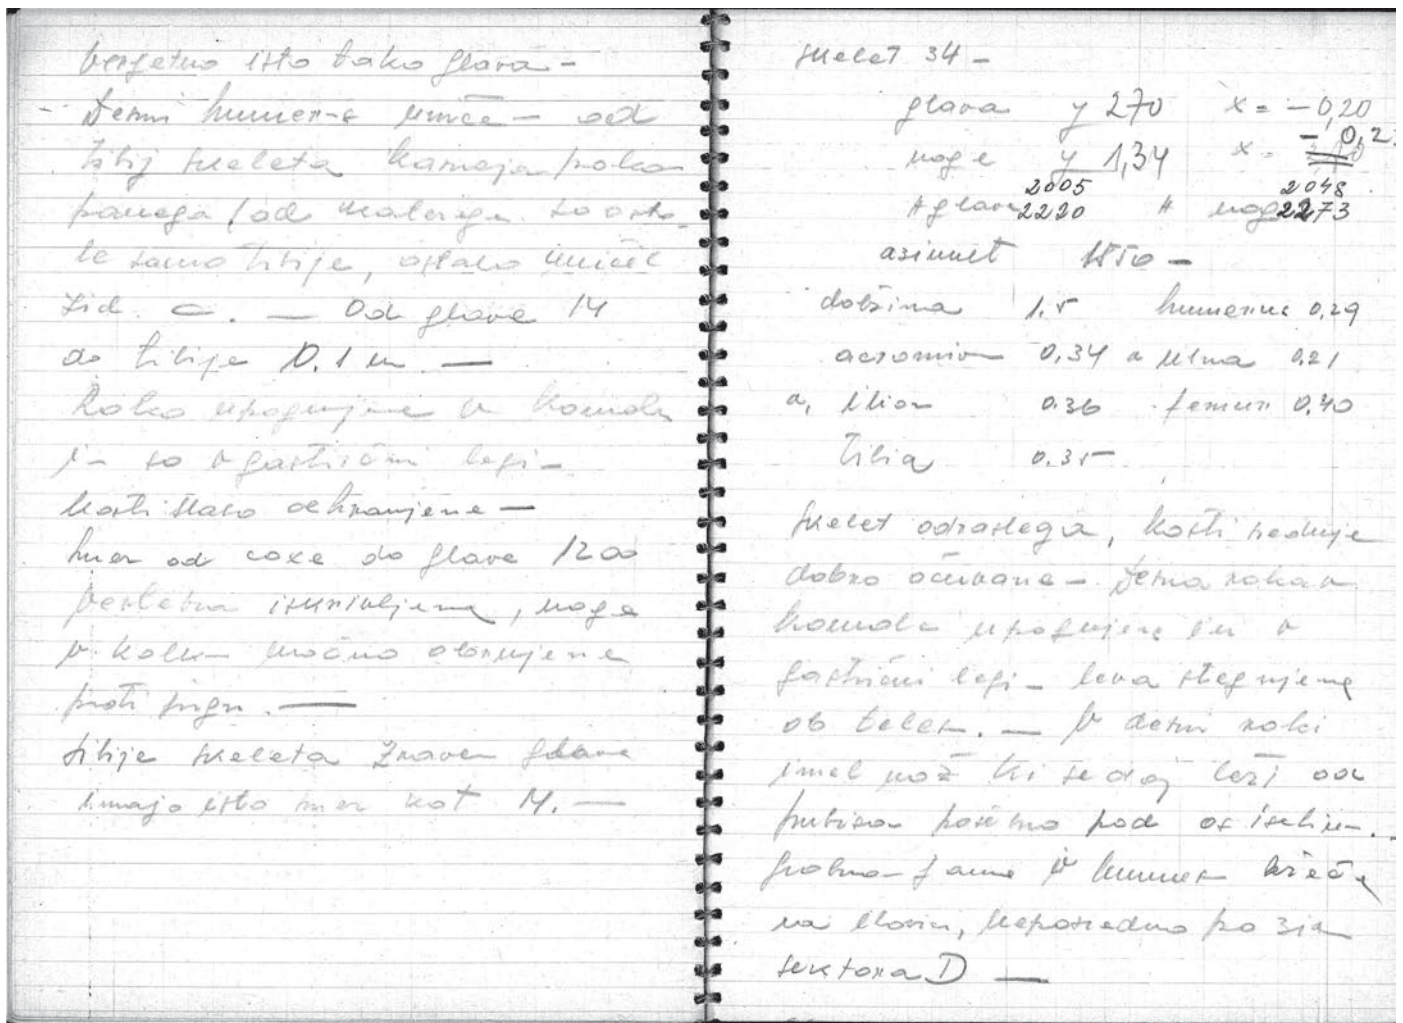 verjetno isto tako glava -
- Desni humerus uniče- od
tibij skeleta kasneje poko
panega (od katerega so osta
le samo tibije, ostalo uničil
zid. - Od glave 14
do tibije 0.1 m. —
Roko upognjene v komolcu
in so v gastrični legi -
kosti slabo ohranjene —
smer od coxe do glave 1200
vertebra iskrivljena, noge
v kolku močno obrnjene
proti jugu. —
tibije skeleta zraven glave
imajo isto smer kot 14. —
skelet 34 -
glava y 270 x = - 0,20
noge y 1,34 x = - 0,2
2005 2048
# glava 2220 # nog 2273
azimut 1850 -
dolžina 1.5 humerus 0.29
acromion 0,34 ulna 0.21
a, ilion 0.36 femur 0.40
tibia 0.35
skelet odraslega, kosti srednje
dobro očuvane - desna roka v
komolcu upognjena in v
gastrični legi - leva stegnjena
ob telesu. — V desni roki
imel nož ki sedaj leži od
pubisa poševno pod os ischium.
grobna jama v humus vreže
na ilovici, neposredno po zidu
sektora D —